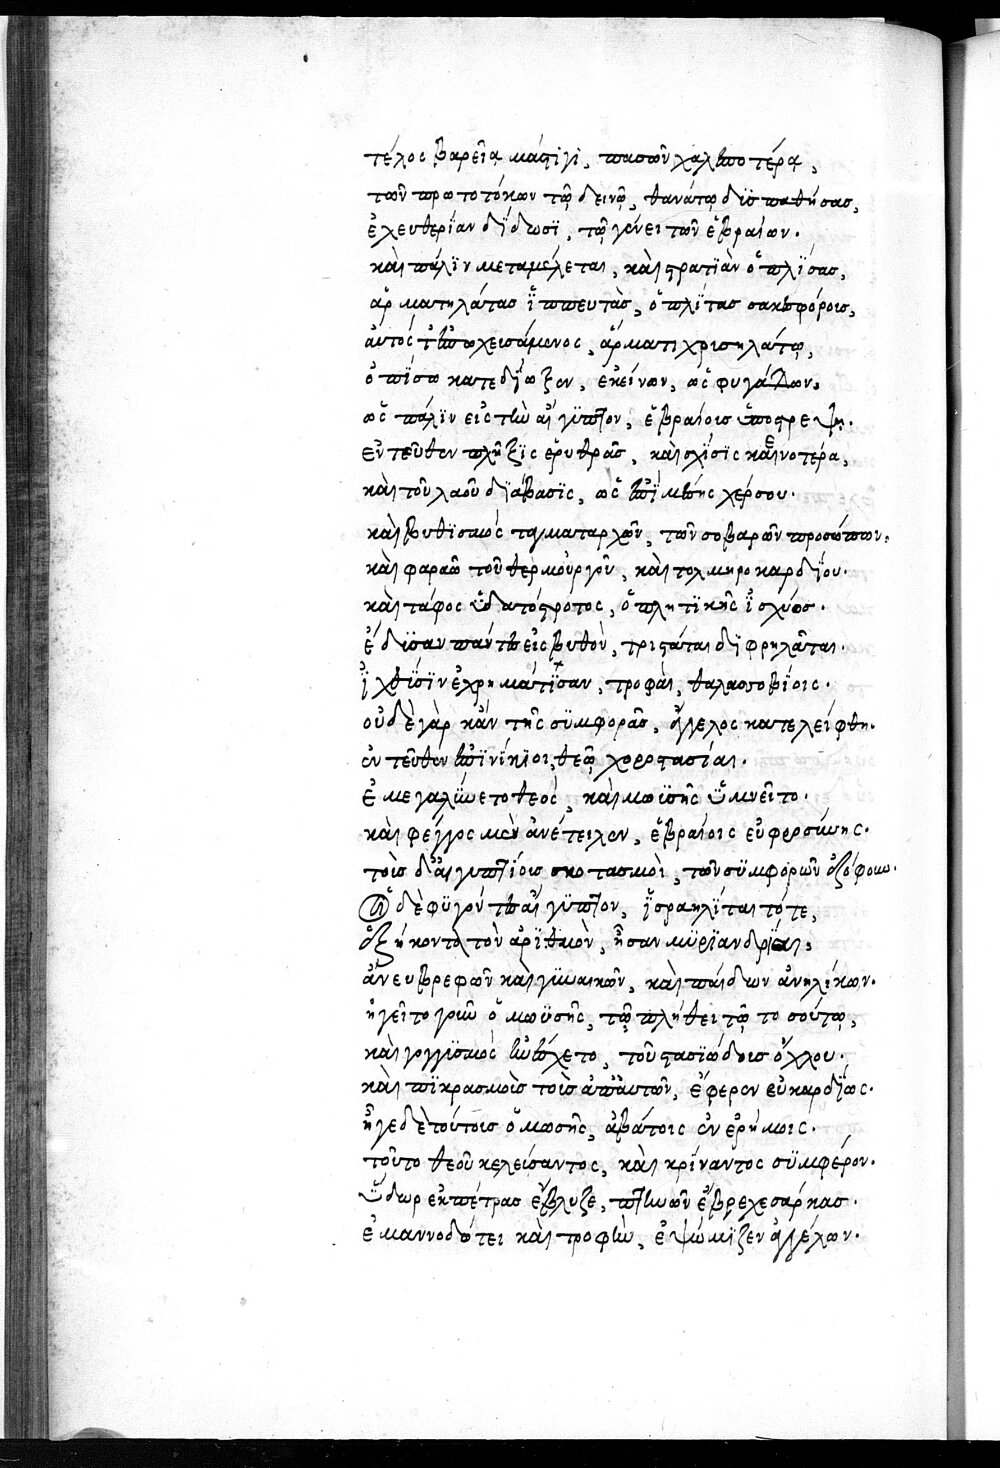 τέλος βαρεῖα μάστιγι, πασῶν χαλεποτέρα,
τῶν πρωτοτόκων τῷ δεινῷ, θανάτῳ δϊσπαθήσας,
ἐλευθερΐαν δΐδωσϊ, τῷ γένει τῶν ἑβραίων.
καὶ πάλϊν μεταμέλεται, καὶ στρατϊὰν ὁπλΐσας,
ἁρματηλάτας ἵππευτὰς, ὁπλίτας σακεσφόροις,
αὐτός τ' ἐποχεισάμενος, ἅρματι χρισηλάτῳ,
ὀπΐσω κατεδΐωξεν, ἐκείνων, ὡς φυγάδων.
ὡς πάλϊν εἰς τὴν αἴγϋπτον, ἑβραίοις ὑποστρέψη.
εντεῦθεν πλῆξϊς ἐρυθρᾶς, καὶ σχΐσϊς καινοτέρα,
καὶ τοῦ λαοῦ δϊάβασϊς, ὡς ἐπΐ μέσης χέρσου.
καὶ βυθϊσμὸς ταγματαρχῶν, τῶν σοβαρῶν προσώπων.
καὶ φαραῶ τοῦ θερμουργοῦ, καὶ τολμηροκαρδΐου.
καὶ τάφος ὑδατόστροτος, ὁπλητϊκῆς ἰσχύος.
ἔδϋσαν πάντες εἰς βυθὸν, τριστάται δϊφρηλᾶται.
ἰχθΰσϊν ἐχρημάτϊσαν, τροφαὶ, θαλασσοβΐοις.
οὐδὲ γὰρ κἂν τῆς σϋμφορᾶς, ἄγγελος κατελείφθη.
ἐντεῦθεν ἐπϊνίκϊοι, θεῷ χοροστασίαι.
ἐμεγαλύνετο θεός, καὶ μωϊσῆς ὕμνεῖτο.
καὶ φέγγος μὲν ἀνέτειλεν, ἑβραίοις εὐφερσύνης.
τοῖς δ' αἰγυπτίοις σκοτασμοὶ, τῶν σϋμφορῶν ὀζόφουν.
Οἱ δὲ φϋγόντες αἴγϋπτον, ἰσραηλῖται τότε,
ἑξήκοντα τὸν ἀρϊθμὸν, ἦσαν μϋρϊανδρΐαι,
ἄνευ βρεφῶν καὶ γϋναικῶν, καὶ παίδων ἀνηλίκων.
ἡγεῖτο γοῦν ὁ μωϋσῆς, τῷ πλήθει τῷ τοσούτῳ,
καὶ γογγϊσμὸς ἐπέσχετο, τοῦ στασϊώδους ὄχλου.
καὶ πϊκρασμοῖς τοῖς ἀπ' αὐτῶν, ἔφερεν εὐκαρδΐως.
ἦγε δὲ τούτοις ὁ μωσῆς, ἀβάτοις ἐν ἐρήμοις.
τοῦτο θεοῦ κελείσαντος, καὶ κρίναντος σϋμφέρον.
ὕδωρ εκ πέτρας ἔβλυζε, πτηνῶν ἔβρεχε σάρκας.
ἐμαννοδότει καὶ τροφὴν, ἐψώμϊζεν ἀγγέλων.